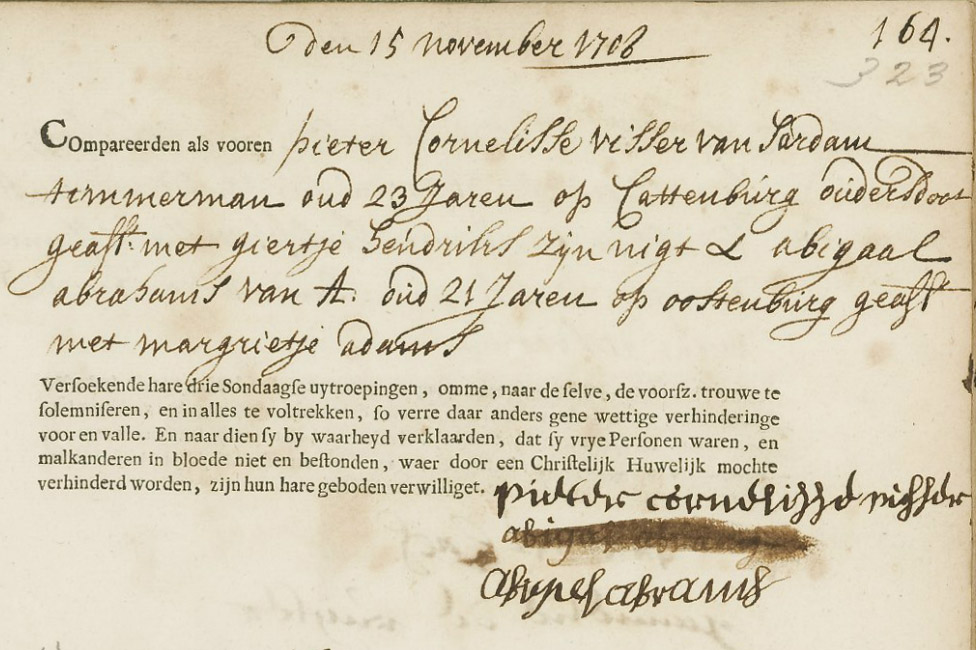 den 15 november 1708
164.
323
COmpareerden als vooren pieter Cornelisse visser van Sardam
timmerman oud 23 Jaren op Cattenburg ouders doot
geasst: met giertje hendriks zijn nigt & abigaal
abrahams van A. oud 21 Jaren op oostenburg geasst
met margrietje adams
Verſoekende hare drie Sondaagſe uytroepingen, omme, naar de ſelve, de voorſz. trouwe te
ſolemniſeren, en in alles te voltrekken, ſo verre daar anders gene wettige verhinderinge
voor en valle. En naar dien ſy by waarheyd verklaarden, dat ſy vrye Perſonen waren, en
malkanderen in bloede niet en beſtonden, waer door een Chriſtelijk Huwelijk mochte
verhinderd worden, zijn hun hare geboden verwilliget.
pieter cornelisse visser
abrams